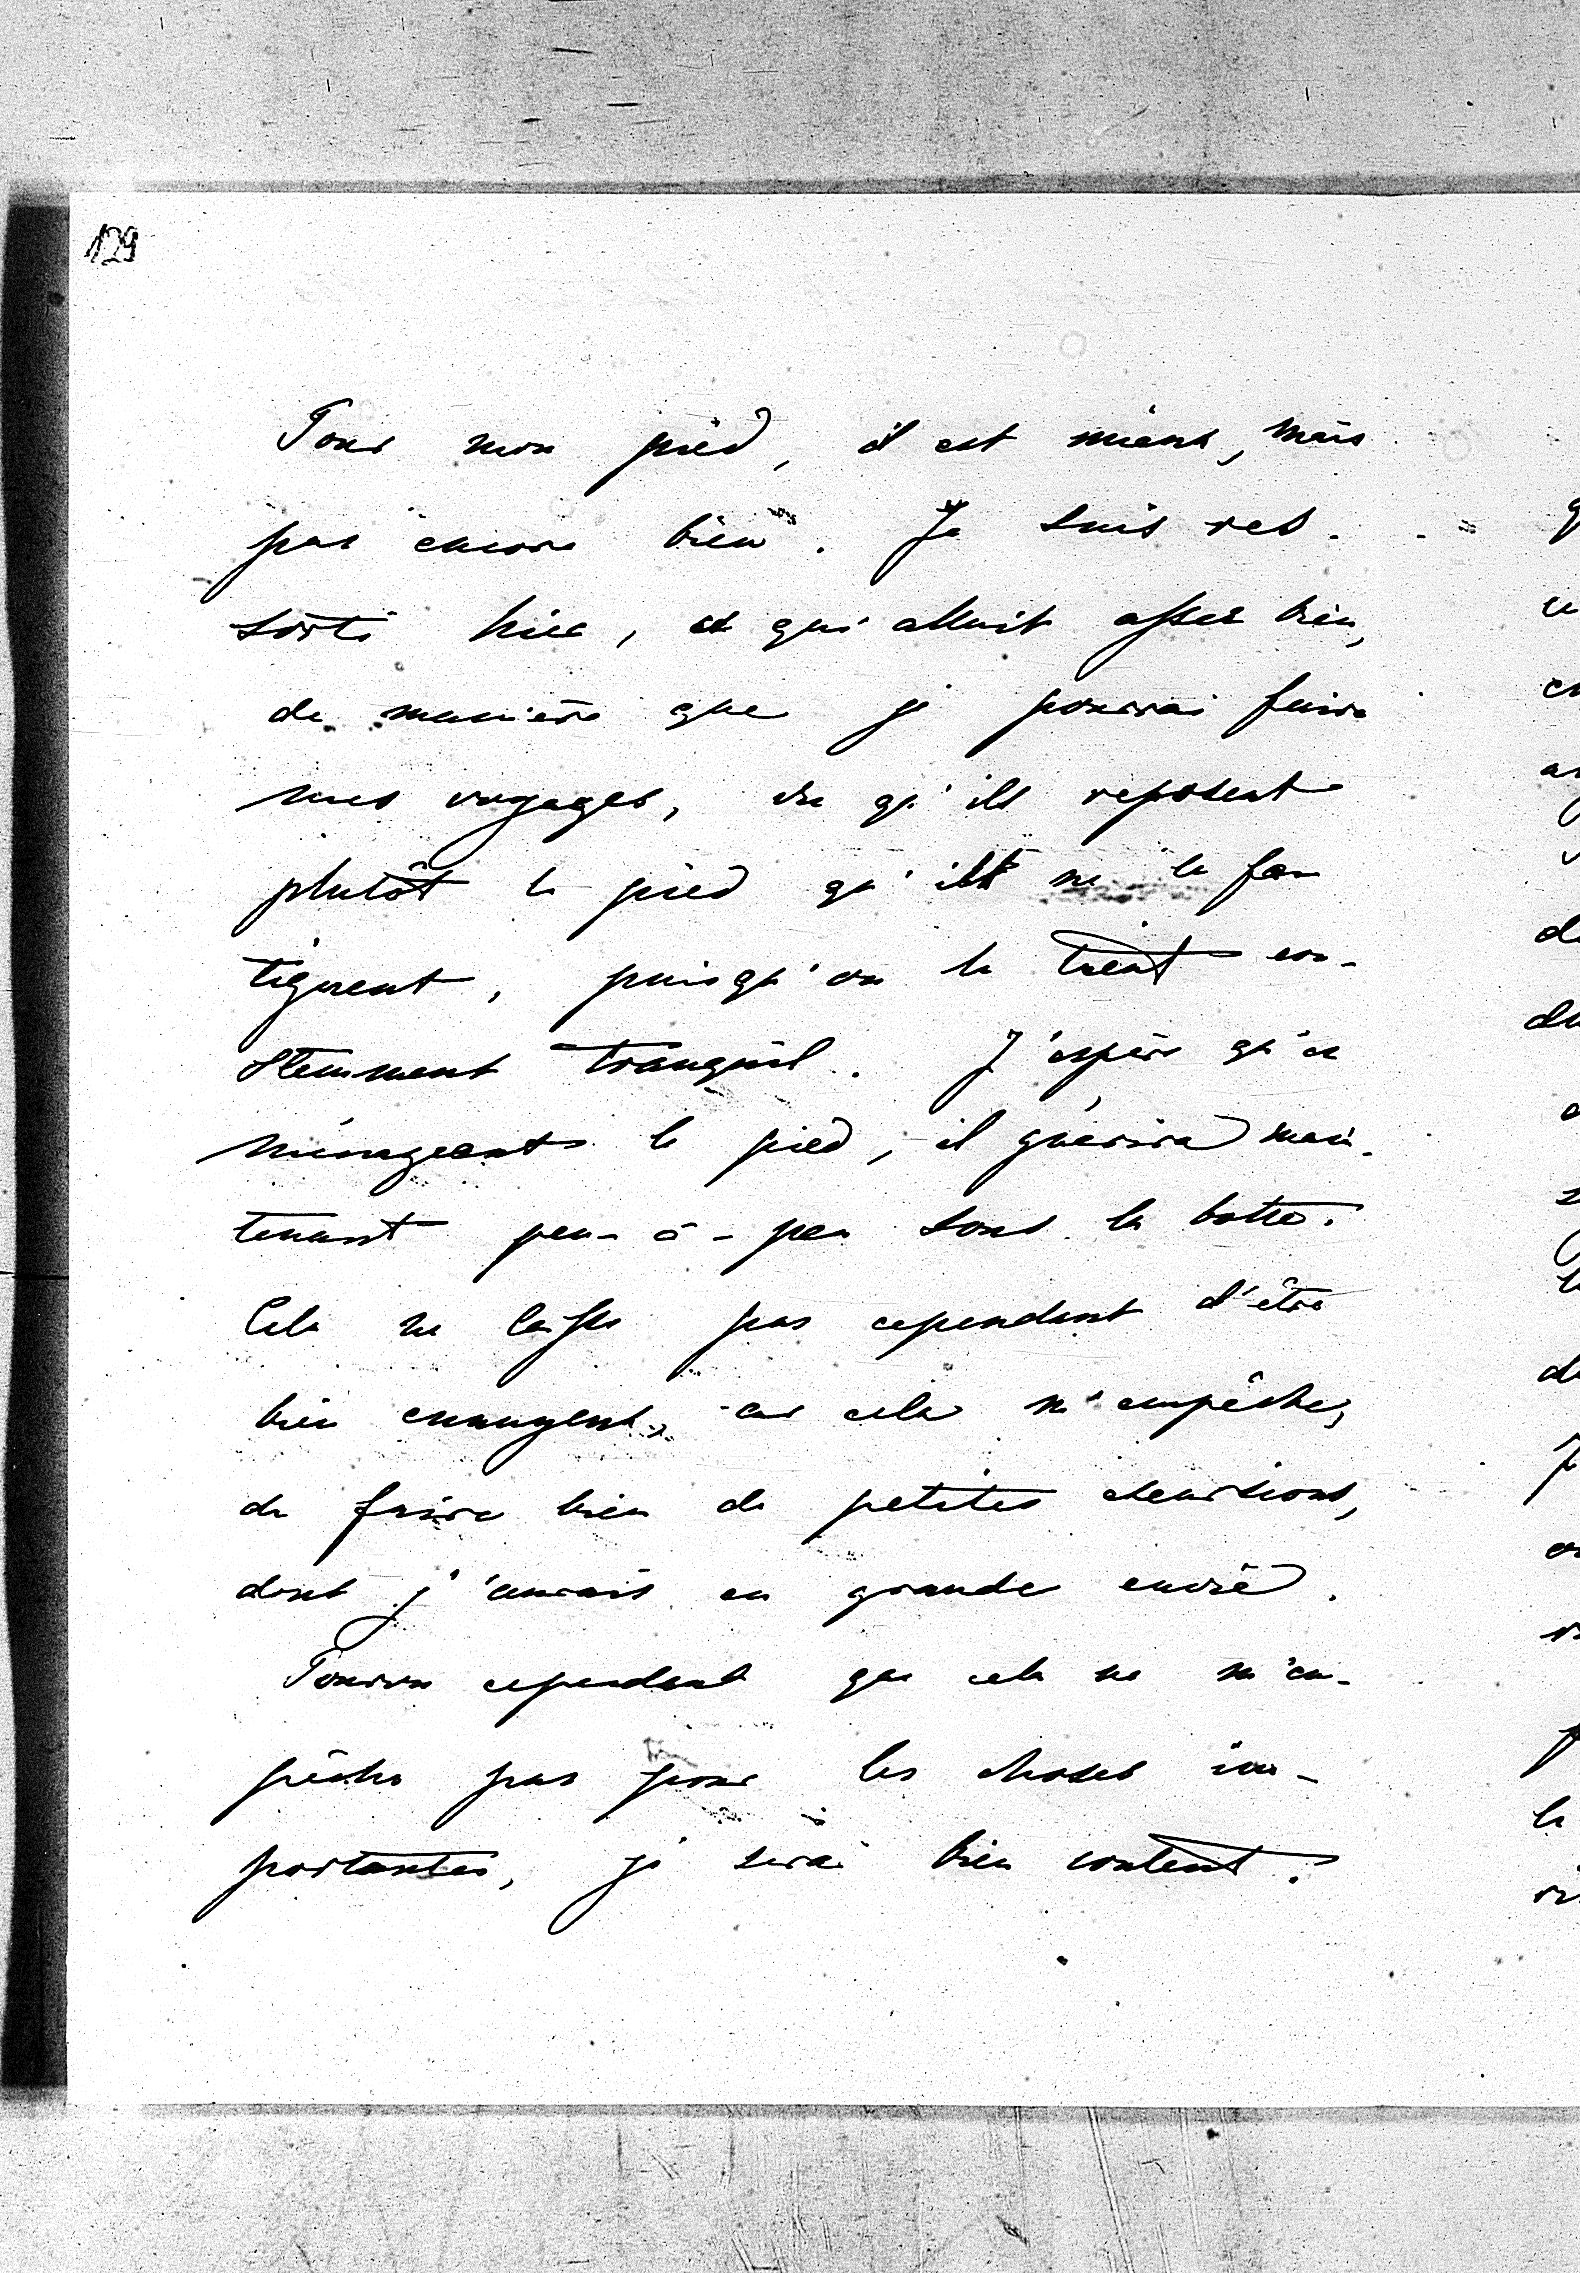 129
Pour mon pied, il est mieux, mais
pas encore bien. Je suis res-
sorti hier, et qui allait assez bien,
de manière que je pourrai faire
mes voyages, vu qu'ils reposent
plutôt le pied qu'ils ne le fa-
tiguent, puisqu'on le tient con-
stemment tranquil. J'espère qu'en
ménageant le pied, il guérira main-
tenant peu-à-peu sous la botte.
Cela ne laisse pas cependant d'être
bien ennuyent, car cela m'empêche,
de faire bien de petites excursions,
dont j'aurais eu grande envie.
Pourvu cependant que cela ne m'em-
pêche pas pour les choses im-
portantes, je serai bien content.